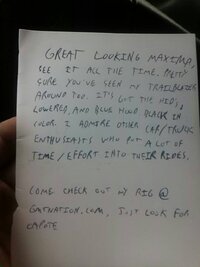 GREAT LOOKING MAXIMA,
SEE IT ALL THE TIME. PRETTY
SURE YOU'VE SEEN MY TRAILBLAZER
AROUND TOO. IT'S GOT THE HIDS,
LOWERED, AND BLUE HOOD BLACK IN
COLOR. I ADMIRE OTHER CAR/TRUCK
ENTHUSIASTS WHO PUT A LOT OF
TIME/EFFORT INTO THEIR RIDES.
COME CHECK OUT MY RIG @
GMTNATION.COM, JUST LOOK FOR
CAPOTE